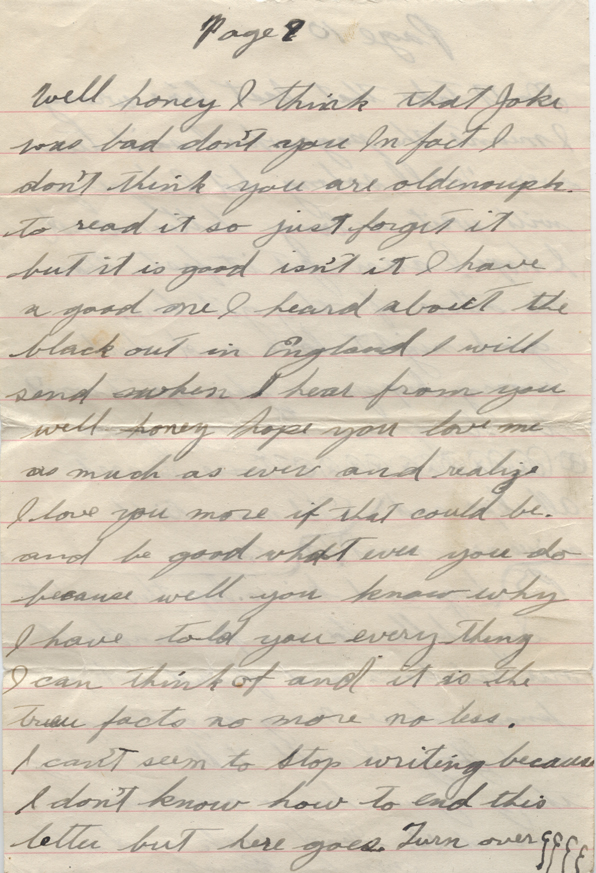 Page 9
Well honey I think that Joke
was bad don't you In fact I
don't think you are oldenough.
to read it so just forget it
but it is good isn't it I have
a good one I heard about the
black out in England I will
send when I hear from you
well honey hope you love me
as much as ever and realize
I love you more if that could be.
and be good what ever you do
because well you know why
I have told you every thing
I can think of and it is the
true facts no more no less.
I can't seem to stop writing because
I don't know how to end this
letter but here goes. Turn over